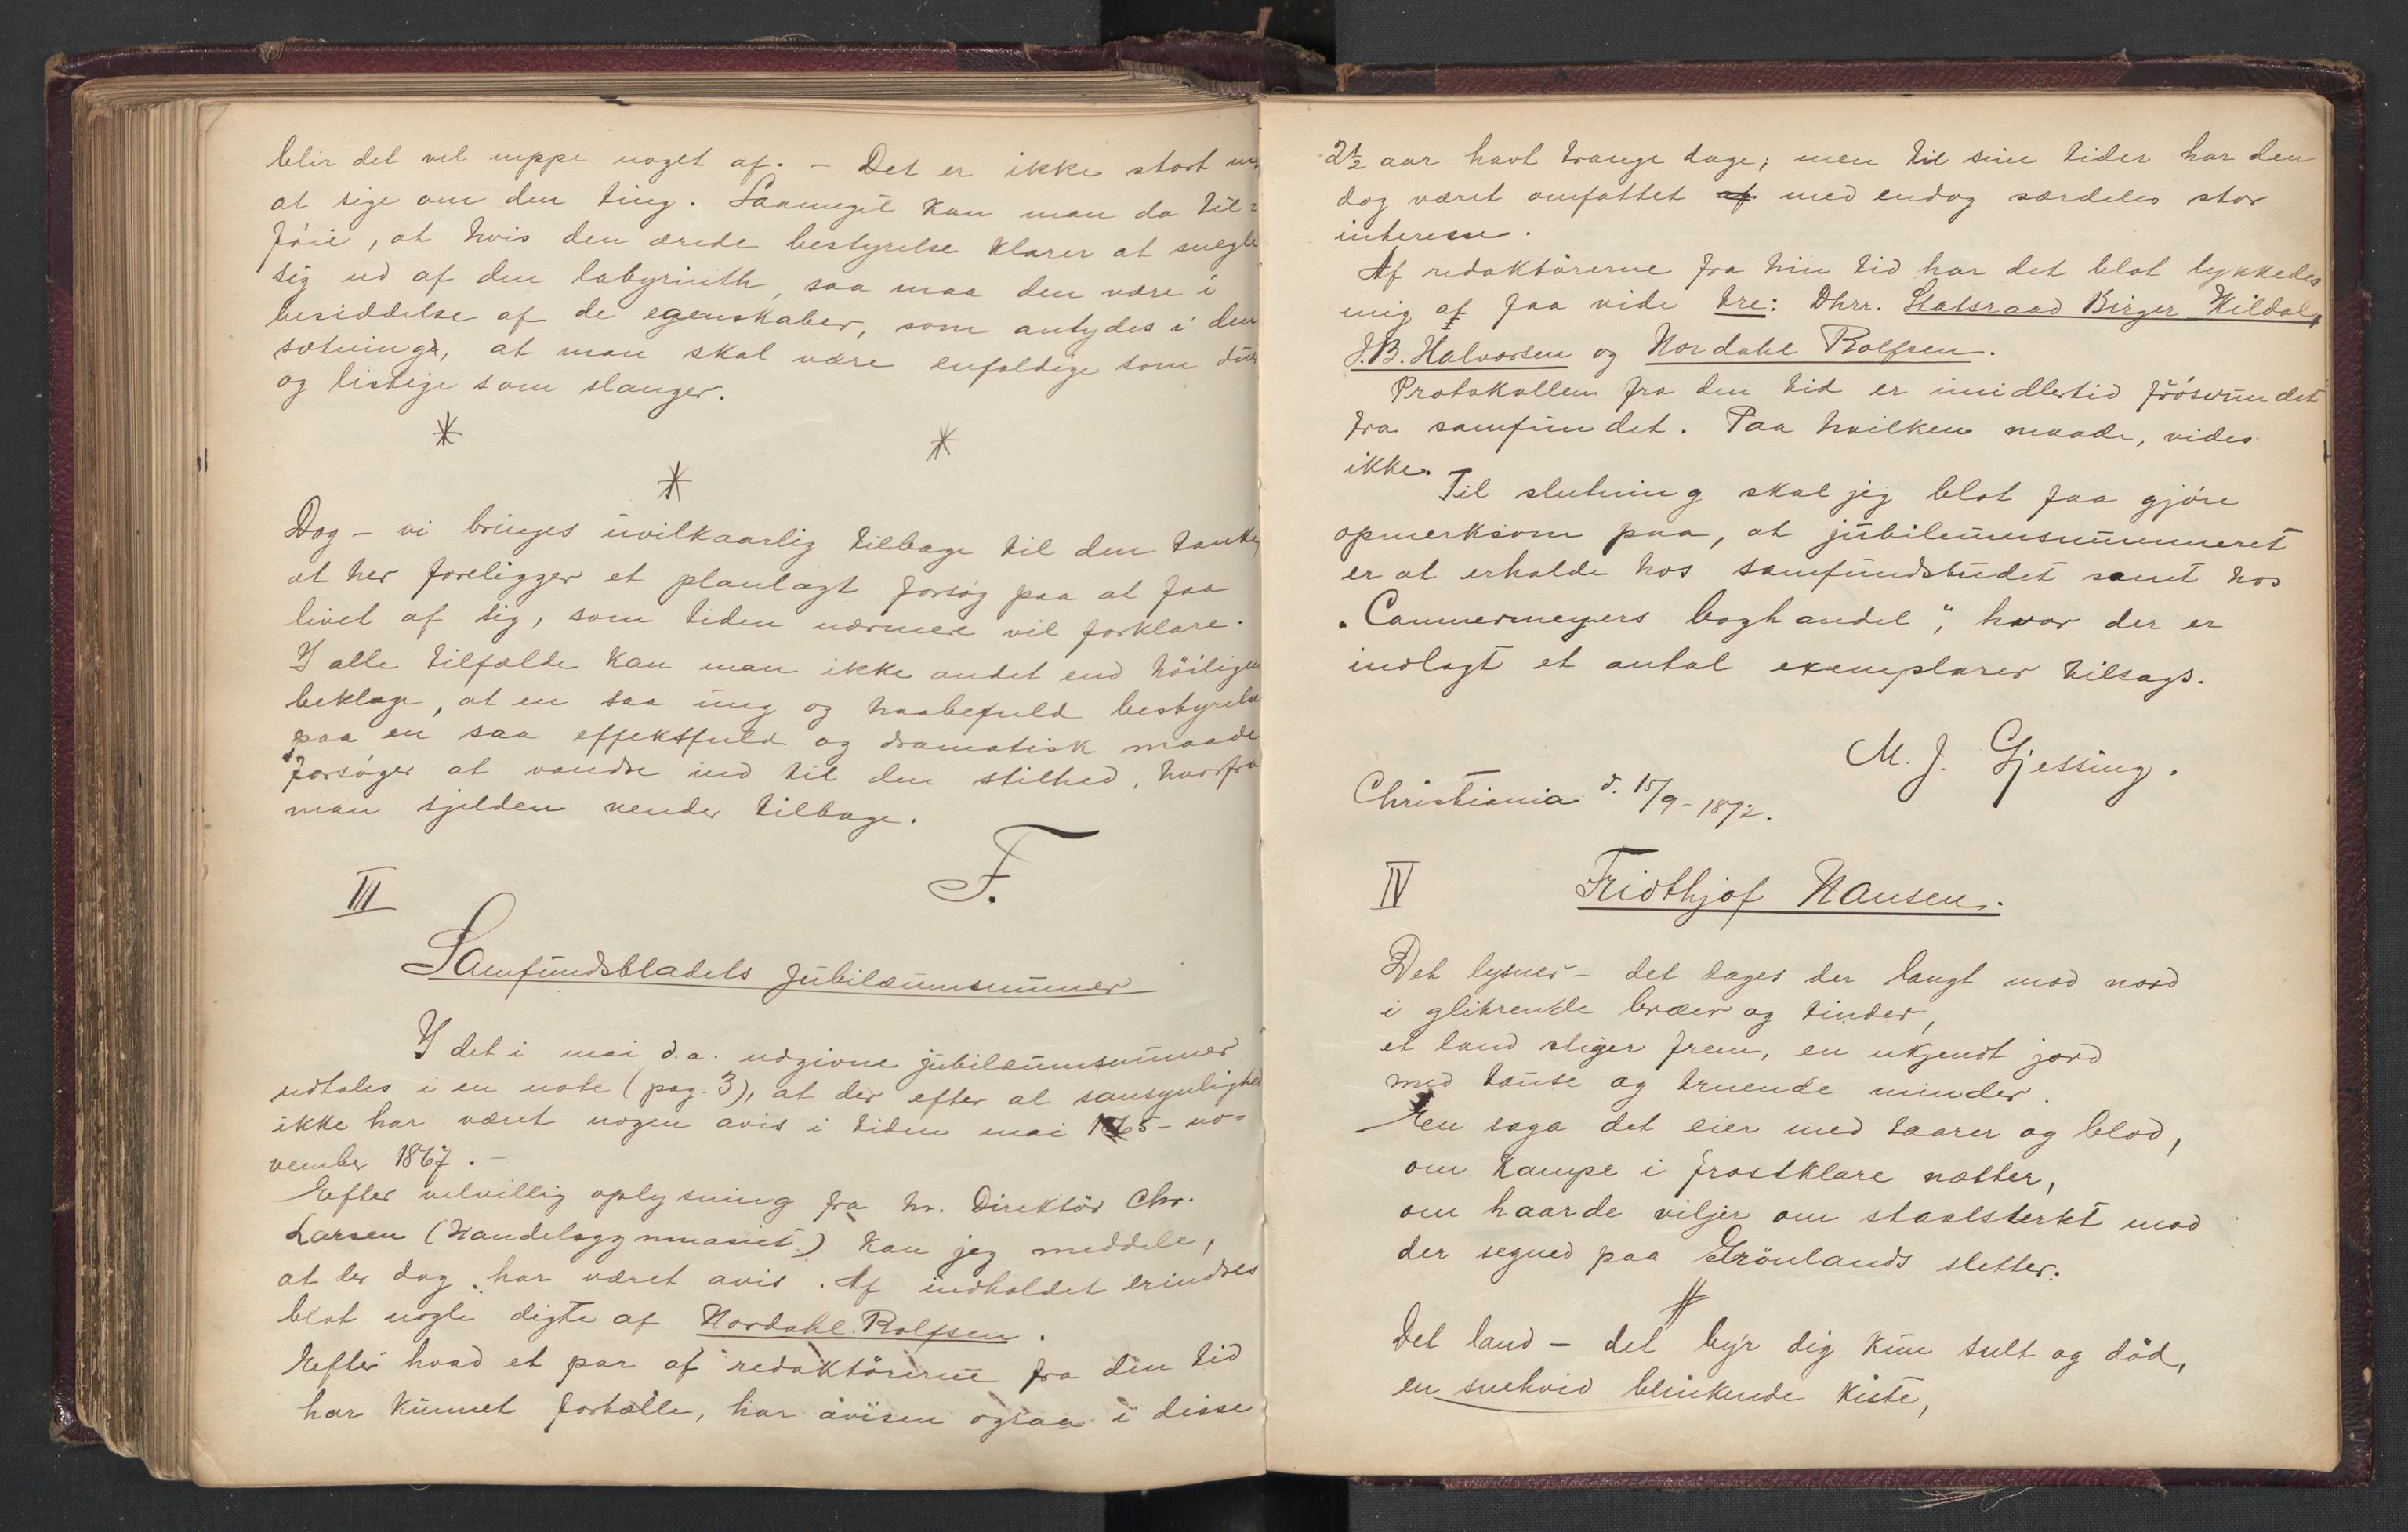 blir det vel neppe noget af. – Det er ikke stort
at sige om den ting. Saameget kan man da til-
föie, at hvis den ærede bestyrelse klarer at snegle
sig ud af den labyrinth, saa maa den være i
besiddelse af de egenskaber, som antydes i den
sætning, at man skal være enfoldige som
og listige som slanger.
Dog – vi bringes uvilkaarlig tilbage til den tanke,
at her foreligger et planlagt forsög paa at faa
livet af sig, som tiden nærmere vil forklare.
I alle tilfælde kan man ikke andet end höiligen
beklage, at en saa ung og haabefuld bestyrelse
paa en saa effektfuld og dramatisk maade
forsöger at vandre ind til den stilhed, hvorfra
man sjelden vender tilbage.
F.
III
Samfundsbladets jubilæumsnummer
I det i mai d.a. udgivne jubilæumsnummer
udtales i en note (pag. 3), at der efter al sansynlighed
ikke har været nogen avis i tiden mai 1865 – no-
vember 1867. –
Efter velvillig oplysning fra hr. Direktör Chr.
Larsen (Handelsgymnasiet) kan jeg meddele,
at der dog har været avis. Af indholdet erindres
blot nogle digte af Nordahl Rolfsen.
Efter hvad et par af redaktörerne fra den tid
har kunnet fortælle, har avisen ogsaa i disse
2½ aar havt trange dage; men til sine tider har den
dog været omfattet af med endog særdeles stor
interesse.
Af redaktörerne fra hin tid har det blot lykkedes
mig at faa vide tre: Dhrr. Statsraad Birger Kildal,
J. B. Halvorsen og Nordahl Rolfsen.
Protokollen fra den tid er imidlertid forsvundet
fra samfundet. Paa hvilken maade, vides
ikke.
Til slutning skal jeg blot faa gjöre
opmerksom paa, at jubileumsnummeret
er at erholde hos samfundsbudet samt hos
"Cammermeyers boghandel", hvor der er
indlagt et antal exemplarer tilsags.
M. J. Gjessing.
Christiania d. 15/9 - 1892.
IV
Fridthjof Nansen.
Det lysner – det dages der langt mod nord
i glitrende bræer og tinder,
et land stiger frem, en ukjendt jord
med tause og truende minder.
En saga det eier med taarer og blod,
om kampe i frostklare nætter,
om haarde viljer om staalsterkt mod
der segned paa Grönlands sletter.
Det land – det byr dig kun sult og död,
en snehvid blinkende kiste,